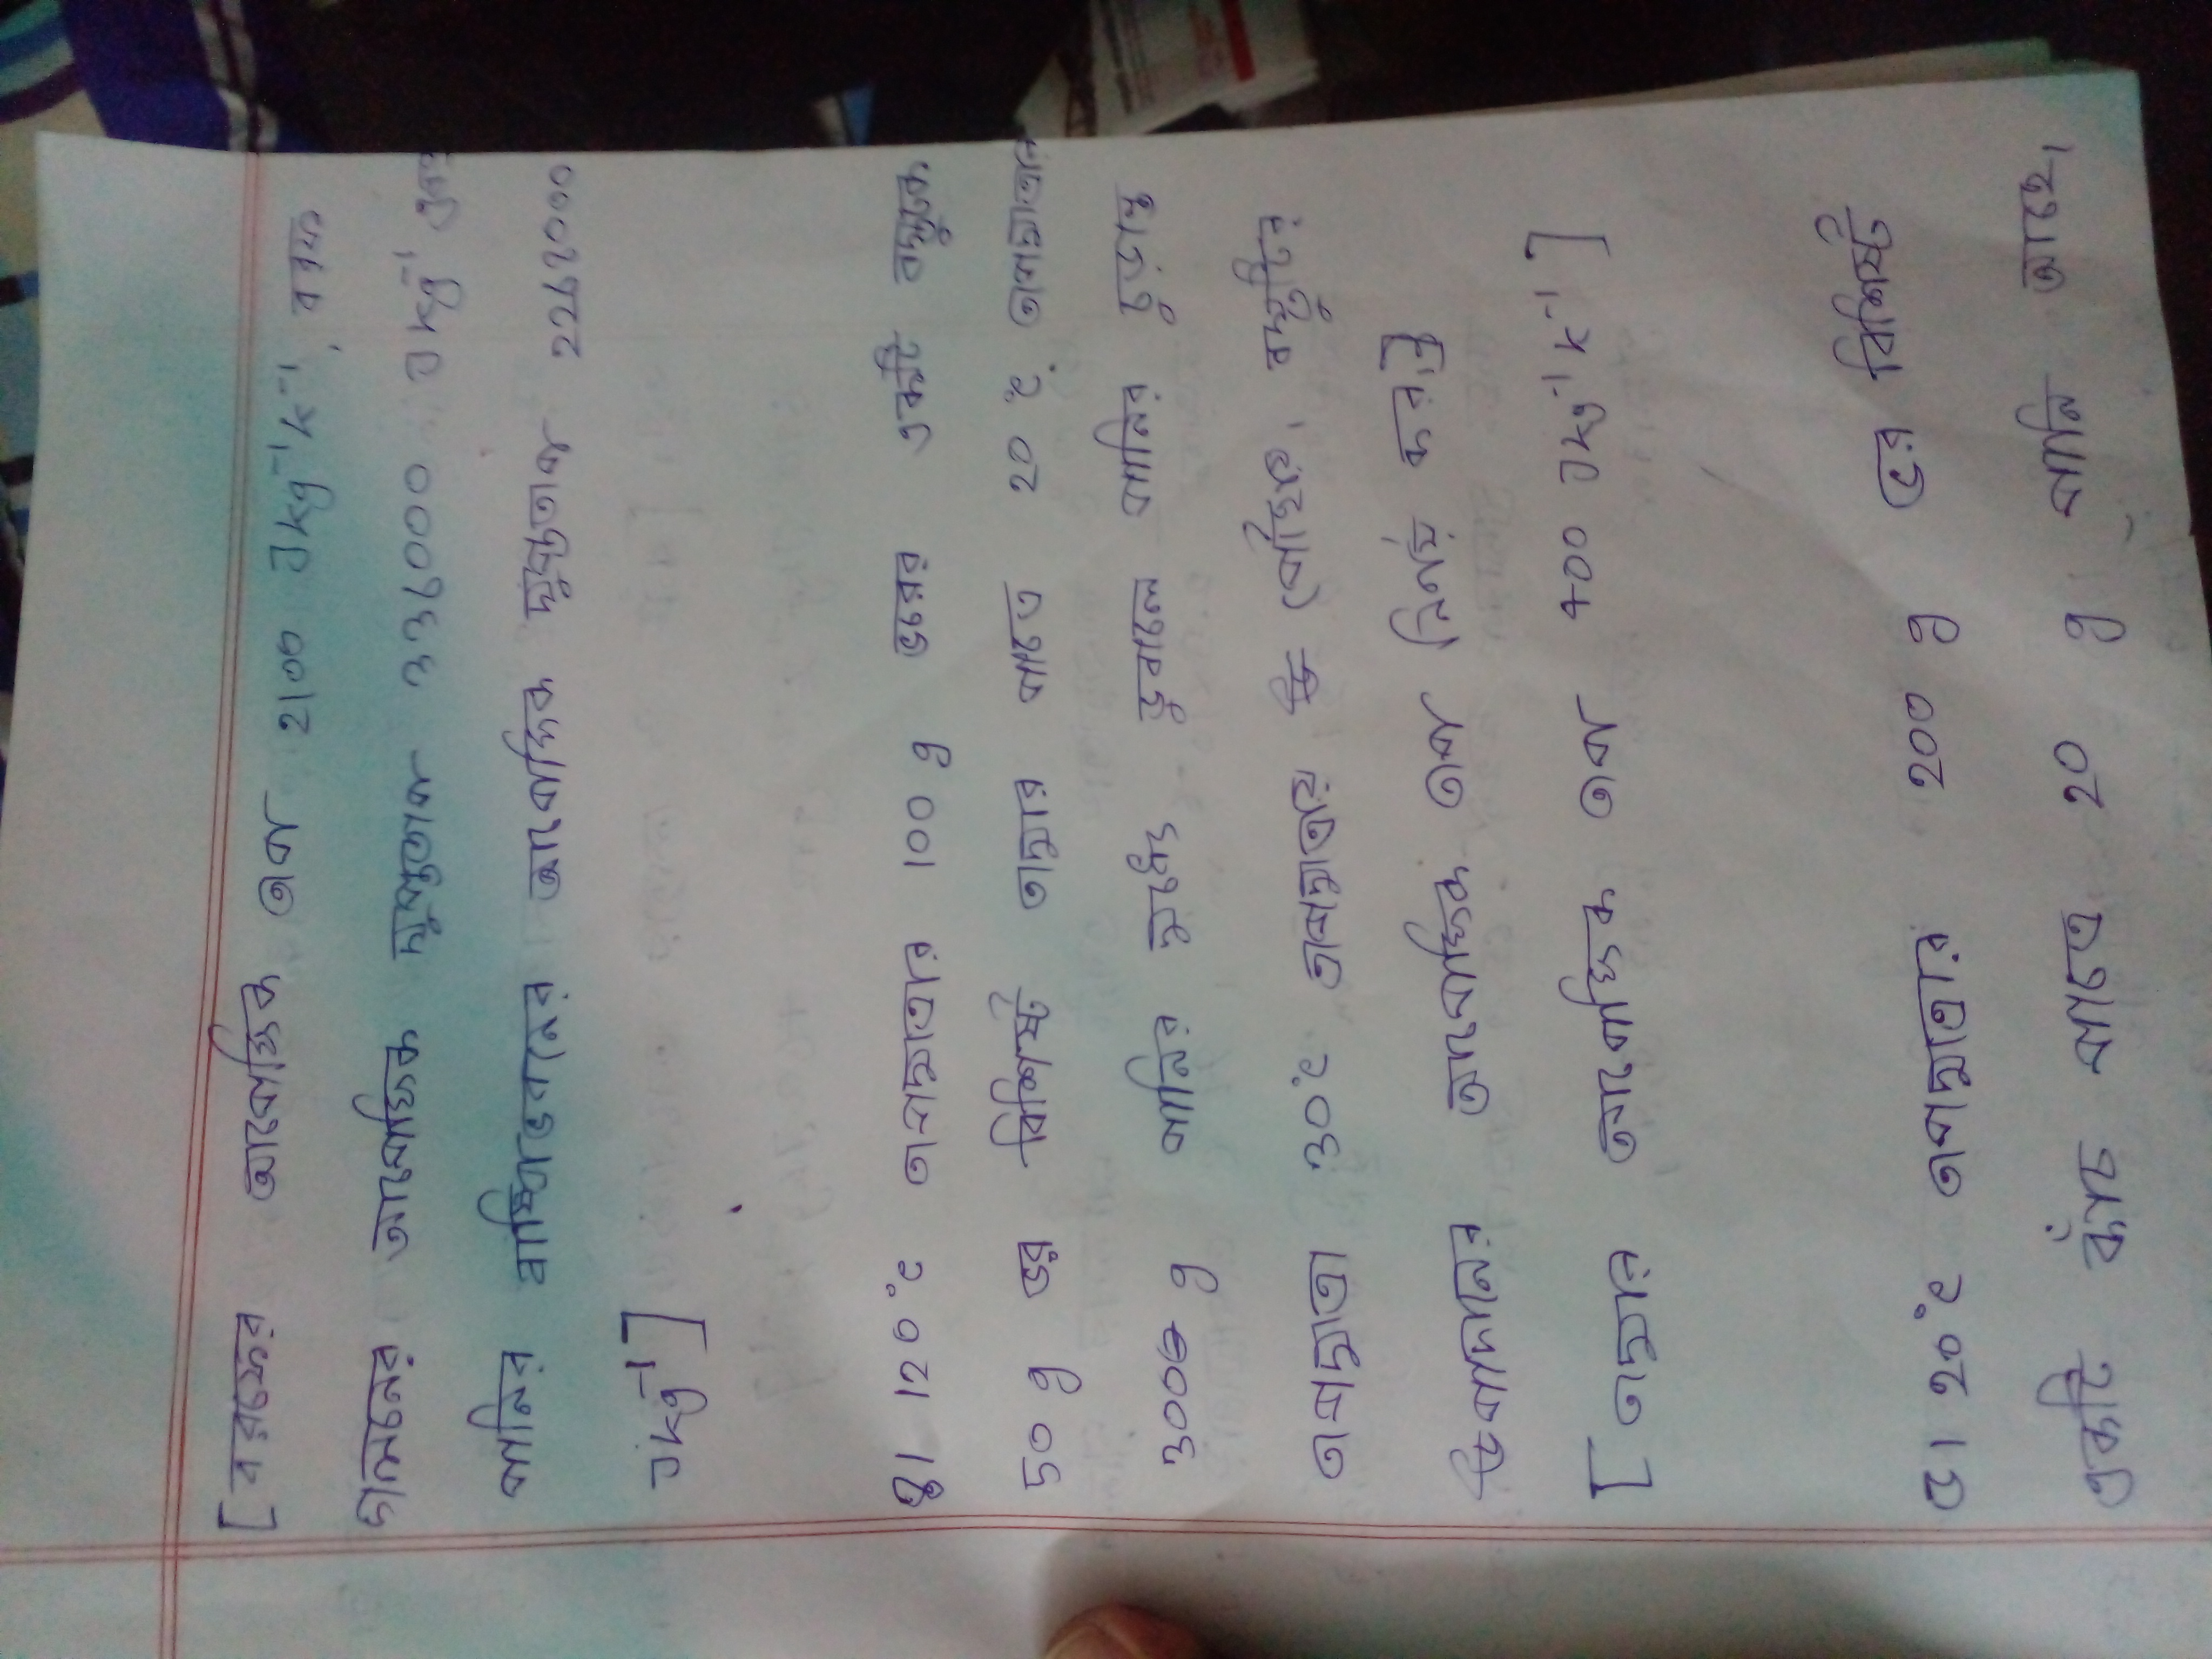 [বরফের আপেক্ষিক তাপ 2100 Jkg⁻¹K⁻¹, বরফ
গলনের আপেক্ষিক সুপ্ততাপ 336000 Jkg⁻¹ এবং
পানির বাষ্পীভবনের আপেক্ষিক সুপ্ততাপ 2268000
Jkg⁻¹]
৪। 120°C তাপমাত্রার 100 g ভরের একটি বস্তুকে
50 g ভর বিশিষ্ট তামার পাত্রে 20°C তাপমাত্রার
300 g পানির মধ্যে ডুবালে পানির চূড়ান্ত
তাপমাত্রা 30°C তাপমাত্রায় পৌঁছে। বস্তুটির
উপাদানের আপেক্ষিক তাপ নির্ণয় কর।
[তামার আপেক্ষিক তাপ 400 Jkg⁻¹K⁻¹]
৫। 20°C তাপমাত্রার 200 g ভর বিশিষ্ট
একটি কাঁচ পাত্রে 20 g পানি আছে।